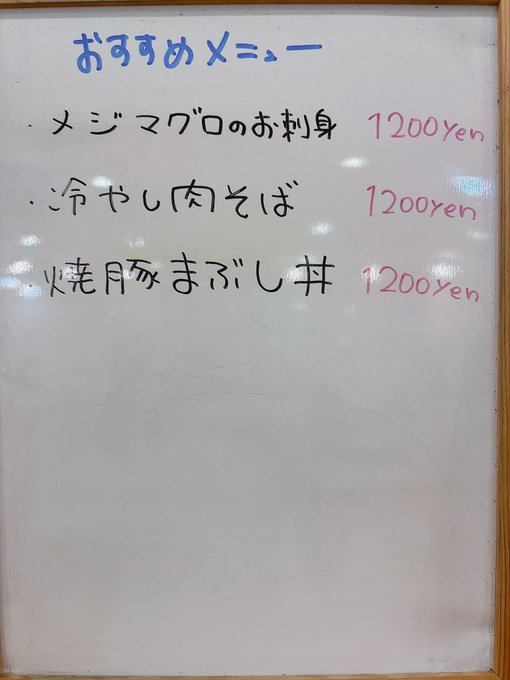 おすすめメニュー
・メジマグロのお刺身 1200Yen
・冷やし肉そば 1200Yen
・焼豚まぶし丼 1200Yen